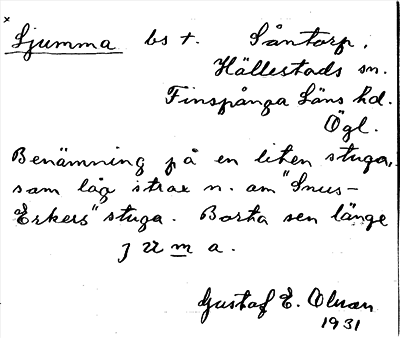 × Ljumma bst. Såntorp,
Hällestads sn.
Finspånga Läns hd.
Ögl.
Benämning på en liten stuga,
som låg strax n. om "Snus-
Erkers" stuga. Borta sen länge
j u m a.
Gustaf E.
1931